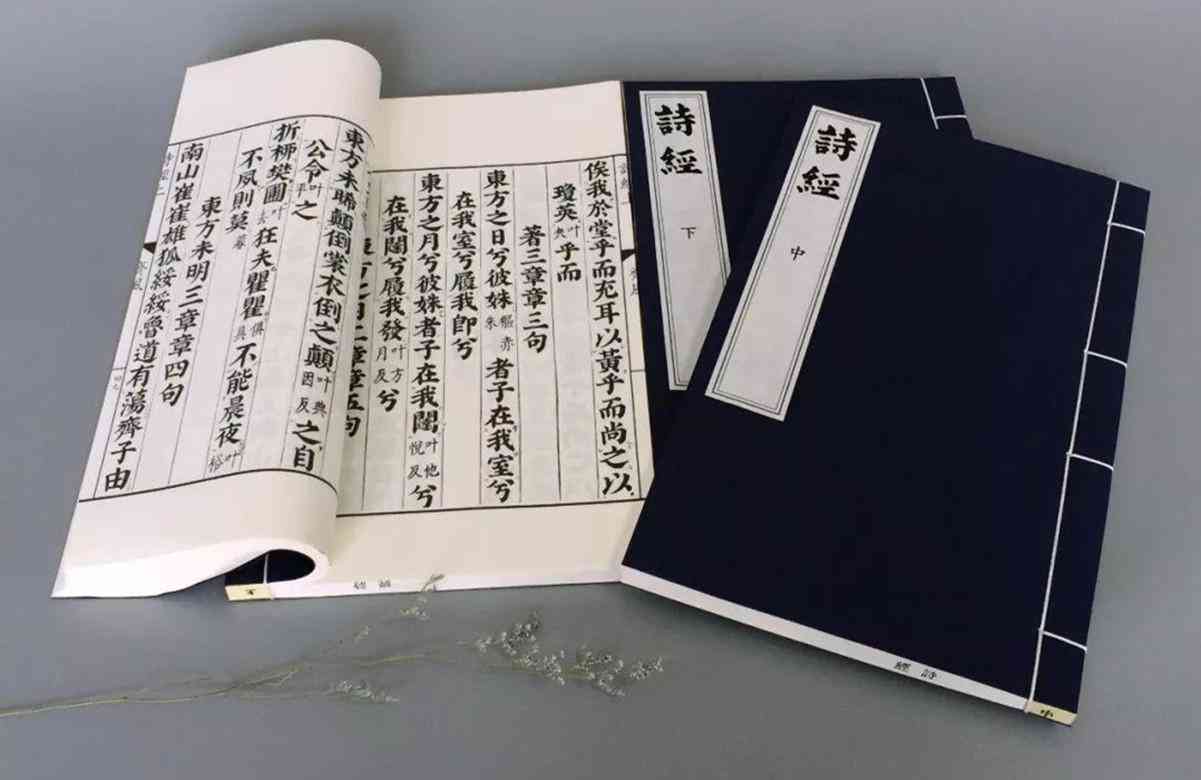 俟我於堂乎而充耳以黃乎而尚之以
瓊英叶央乎而
著三章章三句
東方之日兮彼姝者子在我室兮
在我室兮履我即兮
東方之月兮彼姝者子在我闥叶他悅反兮
在我闥兮履我發叶方月反兮
二章章五句
東方未晞顛倒裳衣倒之顛叶典因反之自
公令叶平之
折柳樊圃叶去狂夫瞿瞿俱具不能晨夜叶裕
不夙則莫慕
東方未明三章章四句
南山崔崔雄狐綏綏魯道有蕩齊子由
詩經
下
詩經
中
詩經
詩經
中